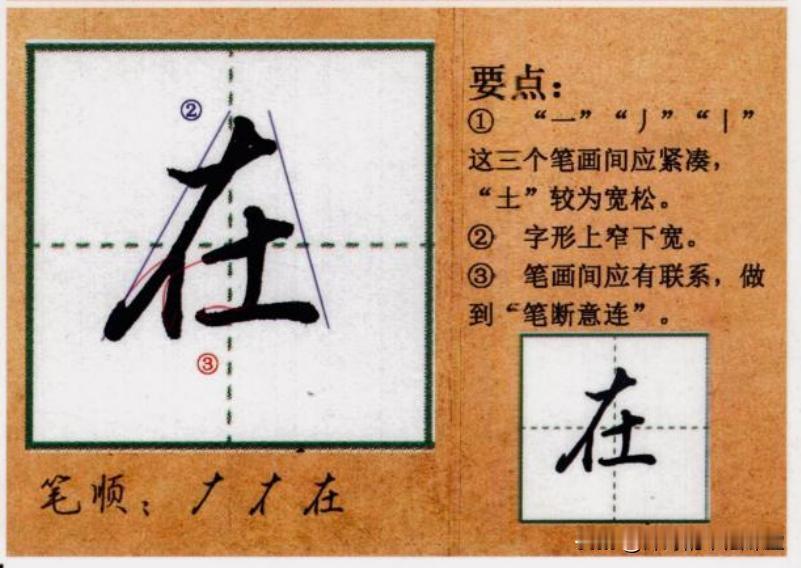 ②
在
③
笔顺：ナ 才 在
要点：
① “一”“丿”“丨”
这三个笔画间应紧凑，
“土”较为宽松。
② 字形上窄下宽。
③ 笔画间应有联系，做
到“笔断意连”。
在